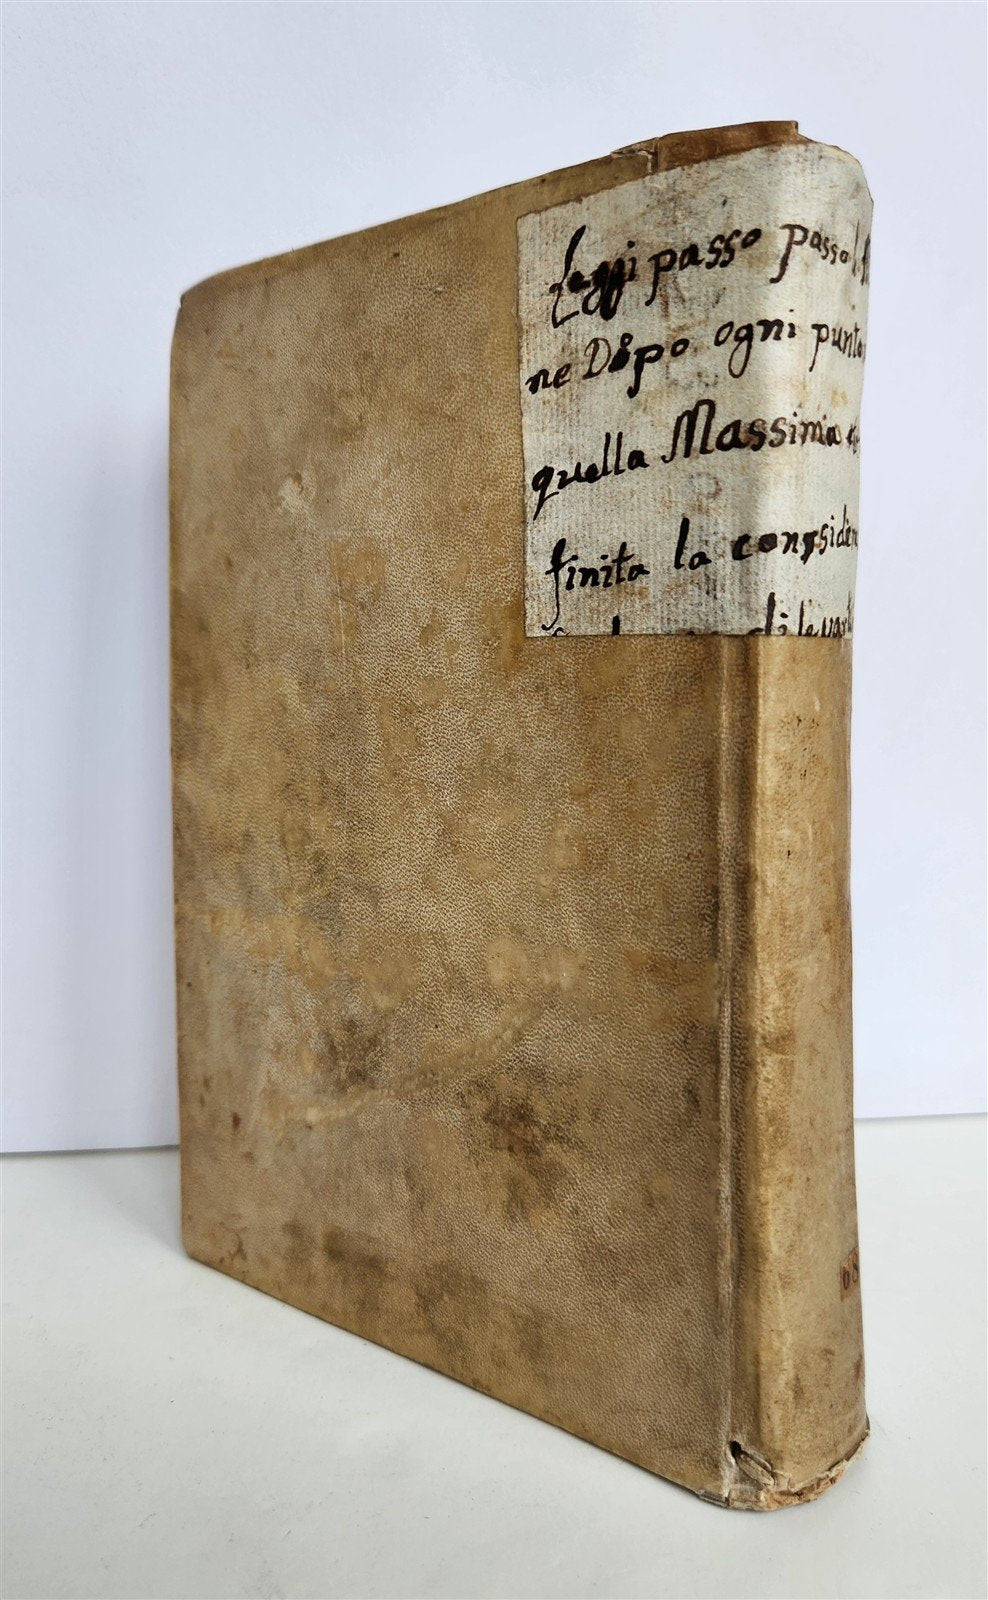 Leggi passo passo l
ne Dopo ogni punto
quella Massima
finita la conssider
di levart
68